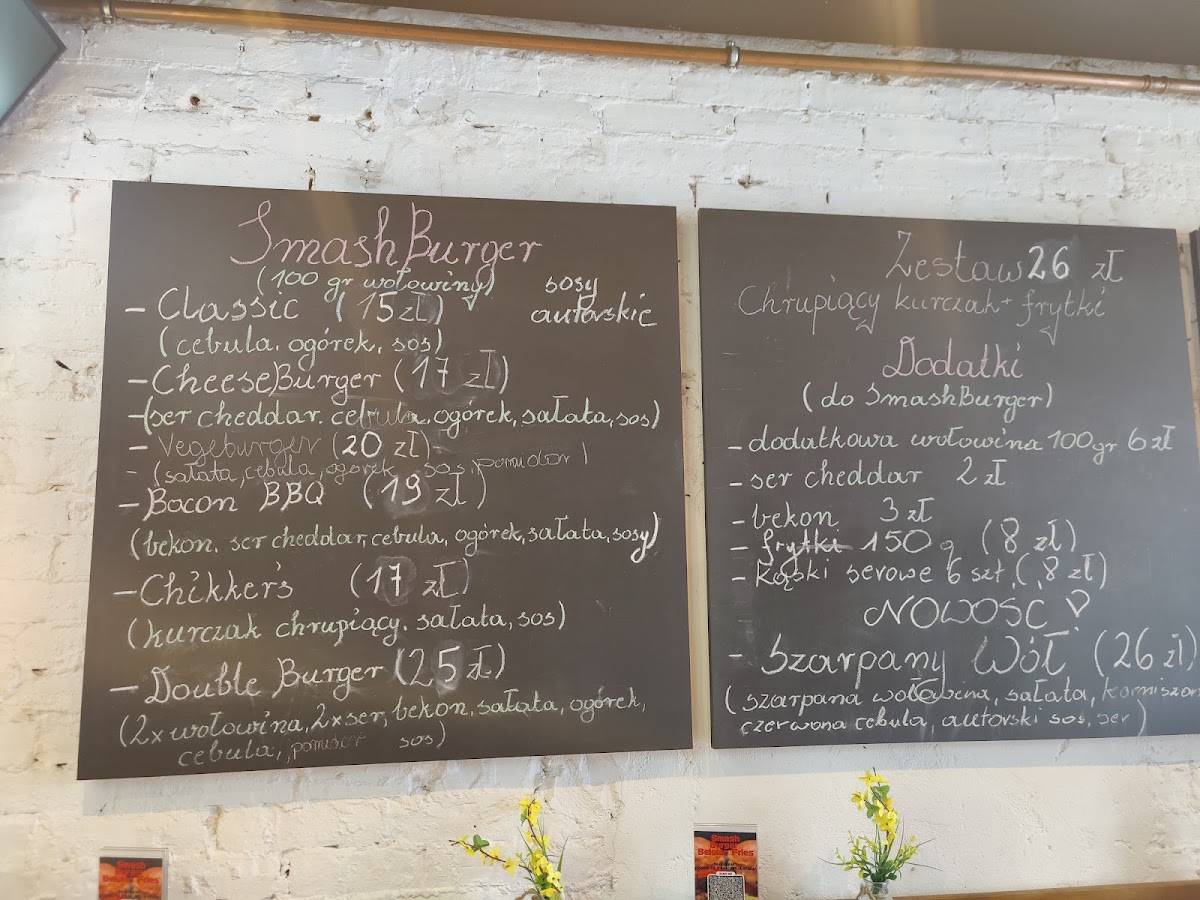 SmashBurger
(100 gr wołowiny)
sosy
autorskie
- Classic (15 zł)
(cebula, ogórek, sos)
- CheeseBurger (17 zł)
-(ser cheddar, cebula, ogórek, sałata, sos)
- Vegeburger (20 zł)
- (sałata, cebula, ogórek sos, pomidor)
- Bacon BBQ (19 zł)
(bekon, ser cheddar, cebula, ogórek, sałata, sosy)
- Chikker's (17 zł)
(kurczak chrupiący, sałata, sos)
- Double Burger (25 zł)
(2x wołowina, 2x ser, bekon, sałata, ogórek,
cebula, pomidor sos)
Zestaw 26 zł
Chrupiący kurczak + frytki
Dodatki
(do SmashBurger)
- dodatkowa wołowina 100gr 6 zł
- ser cheddar 2 zł
- bekon 3 zł
- frytki 150 g (8 zł)
- Kąski serowe 6 szt. (8 zł)
NOWOŚĆ
- Szarpany Wół (26 zł)
(szarpana wołowina, sałata, korniszon
czerwona cebula, autorski sos, ser)
Smash
Belgian Fries